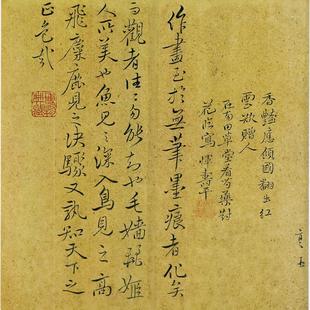 香豔應傾國翻出紅
雲欲贈人
在南田草堂看芍藥對
花臨寫 惲壽平
作畫至於無筆墨痕者化矣
而觀者往往勿能知也毛嬙驪姬
人所美也魚見之深入鳥見之高
飛麋鹿見之決驟又孰知天下之
正色哉